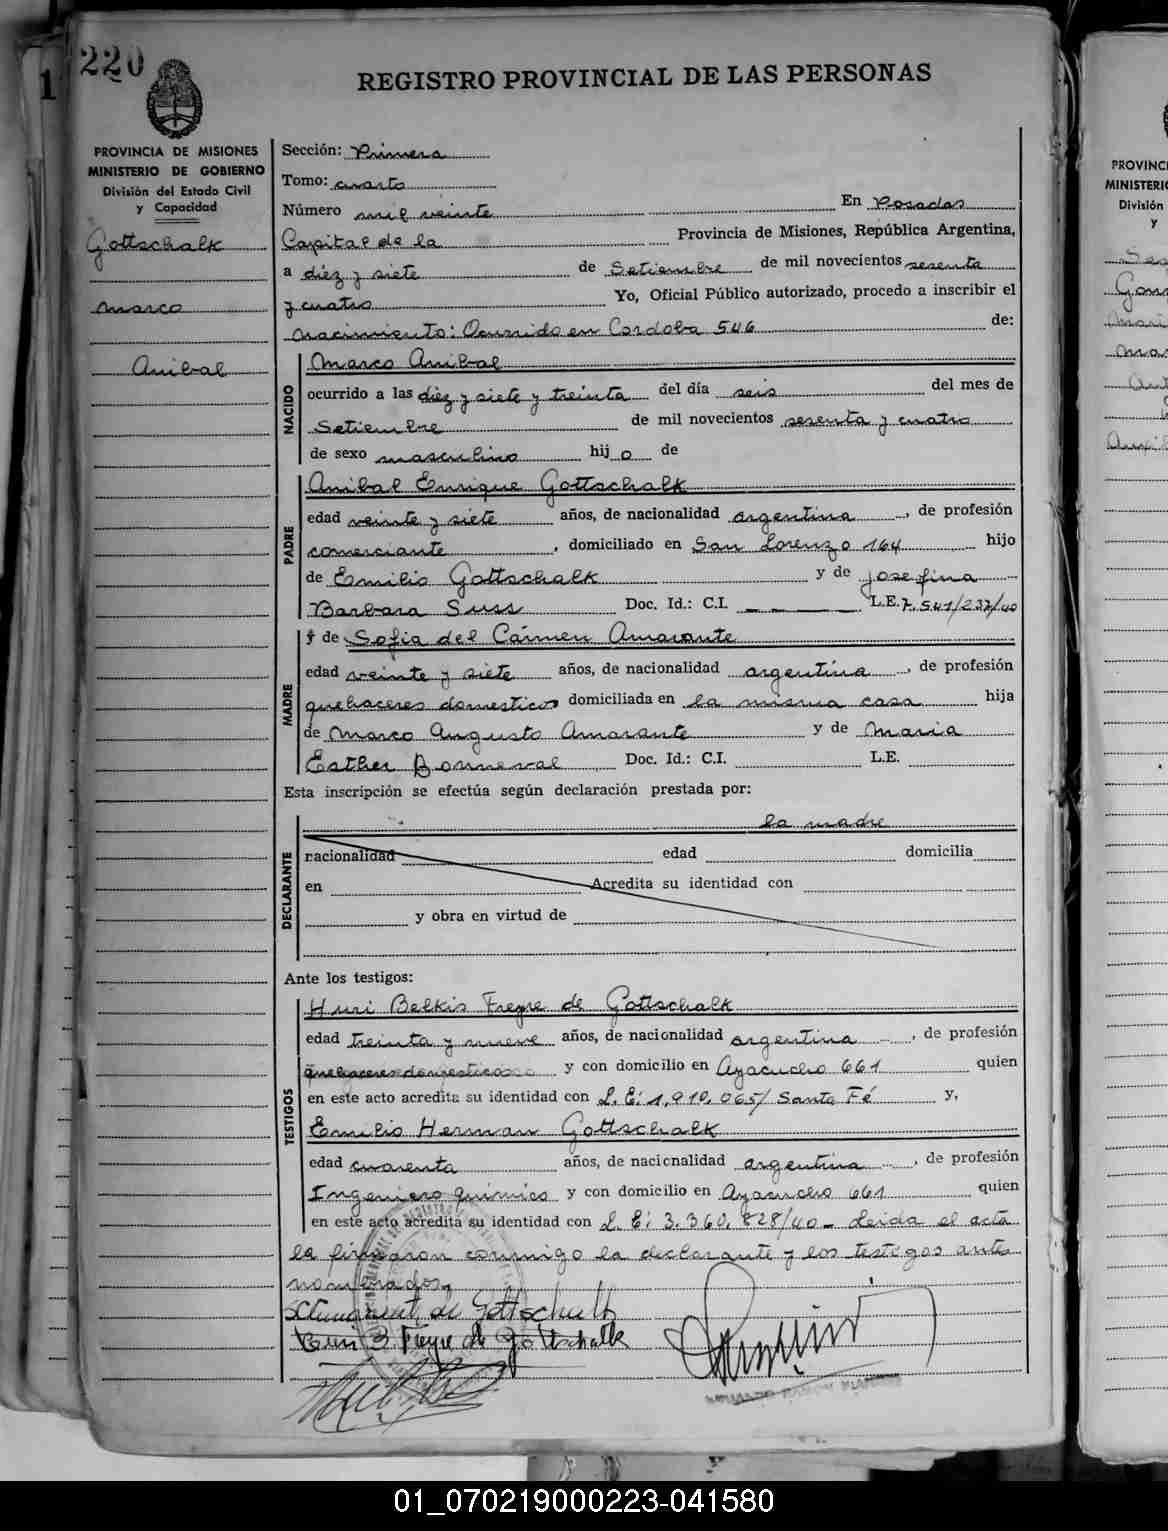 220
REGISTRO PROVINCIAL DE LAS PERSONAS
PROVINCIA DE MISIONES
MINISTERIO DE GOBIERNO
División del Estado Civil
y Capacidad
Gottschalk
Marco
Anibal
Sección: Primera
Tomo: cuarto
Número mil veinte En Posadas
Capital de la Provincia de Misiones, República Argentina,
a diéz y siete de Setiembre de mil novecientos sesenta
y cuatro Yo, Oficial Público autorizado, procedo a inscribir el
nacimiento: Ocurrido en Cordoba 546 de:
NACIDO
Marco Anibal
ocurrido a las diéz y siete y treinta del día seis del mes de
Setiembre de mil novecientos sesenta y cuatro
de sexo masculino hij o de
PADRE
Anibal Enrique Gottschalk
edad veinte y siete años, de nacionalidad argentina, de profesión
comerciante, domiciliado en San Lorenzo 164 hijo
de Emilio Gottschalk y de Josefina
Barbara Suss Doc. Id.: C.I. L.E. 7.541/237/40
MADRE
y de Sofia del Cármen Amarante
edad veinte y siete años, de nacionalidad argentina, de profesión
quehaceres domesticos domiciliada en la misma casa hija
de Marco Augusto Amarante y de Maria
Esther Bonneval Doc. Id.: C.I. L.E.
Esta inscripción se efectúa según declaración prestada por:
la madre
DECLARANTE
nacionalidad edad domicilia
en Acredita su identidad con
y obra en virtud de
Ante los testigos:
TESTIGOS
Huri Belkis Freyre de Gottschalk
edad treinta y nueve años, de nacionalidad argentina, de profesión
quehaceres domesticos y con domicilio en Ayacucho 661 quien
en este acto acredita su identidad con L.E: 1.910.065/ Santa Fé y,
Emilio Herman Gottschalk
edad cuarenta años, de nacionalidad argentina, de profesión
Ingeniero químico y con domicilio en Ayacucho 661 quien
en este acto acredita su identidad con L.E: 3.360.828/40- Leida el acta
la firmaron conmigo la declarante y los testigos antes
nombrados.
de Gottschalk
B Freyre de Gottschalk
PROVINCI
MINISTERIO
División
y
01_070219000223-041580